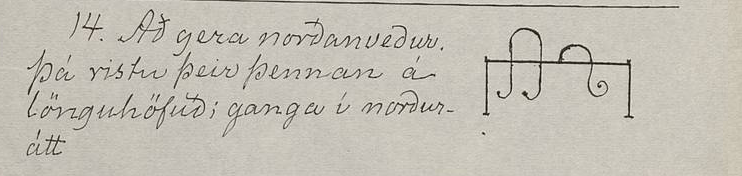 14. Að gera norðanveður.
Þá ristu þeir þennan á
lönguhöfuð; ganga í norður-
átt